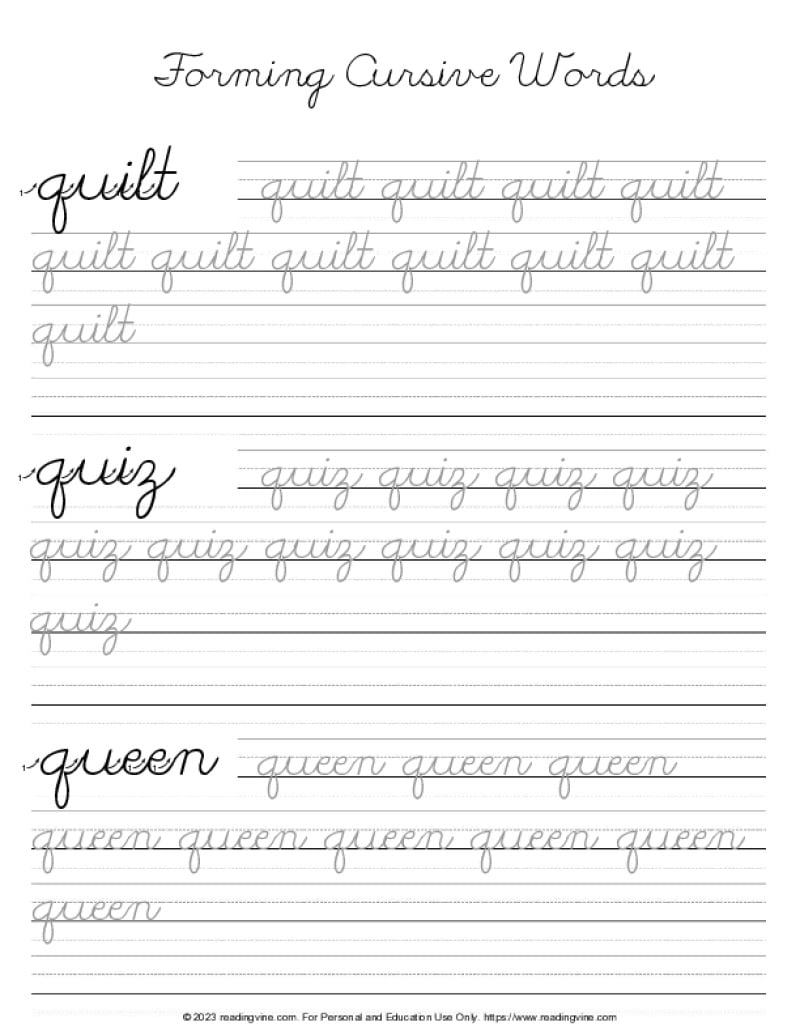 Forming Cursive Words
1 quilt quilt quilt quilt quilt
quilt quilt quilt quilt quilt quilt
quilt
1 quiz quiz quiz quiz quiz
quiz quiz quiz quiz quiz quiz
quiz
1 queen queen queen queen
queen queen queen queen queen
queen
© 2023 readingvine.com. For Personal and Education Use Only. https://www.readingvine.com